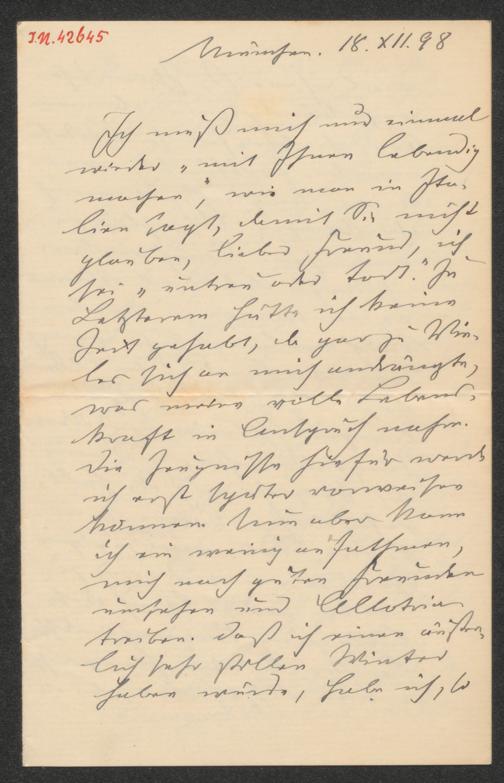 I.N. 42645
München. 18. XII. 98
Ich muß mich nur einmal
wieder „mit Ihnen lebendig
machen", wie man in Ita-
lien sagt, damit Sie nicht
glauben, lieber Freund, ich
sei „untreu oder todt." Zu
Letzterem hätte ich keine
Zeit gehabt, da gar zu Vie-
les sich an mich andrängte,
was meine volle Lebens-
kraft in Anspruch nahm.
Die Zeugnisse hiefür werde
ich erst später vorweisen
können. Nun aber kann
ich ein wenig aufathmen,
mich nach guten Freunden
umsehen und Allotria
treiben. Daß ich einen äußer-
lich sehr stillen Winter
haben würde, habe ich, so